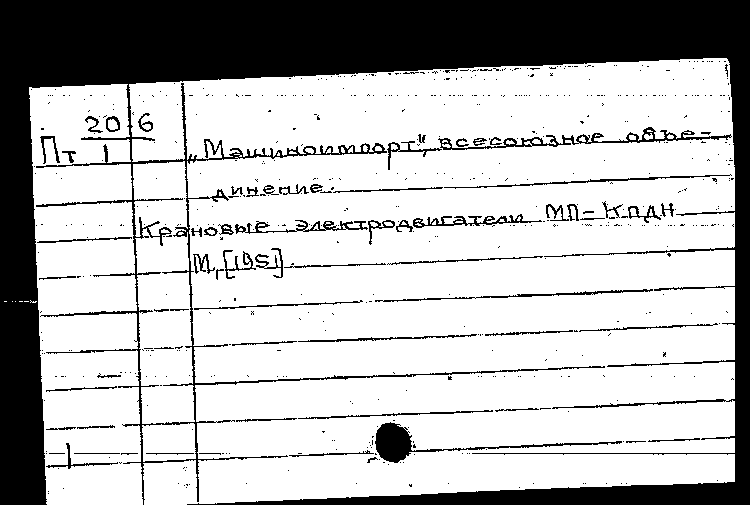 Пт 20.6
1
„Машиноимпорт", всесоюзное объе-
динение.
Крановые электродвигатели МП-КПДН
М, [195]